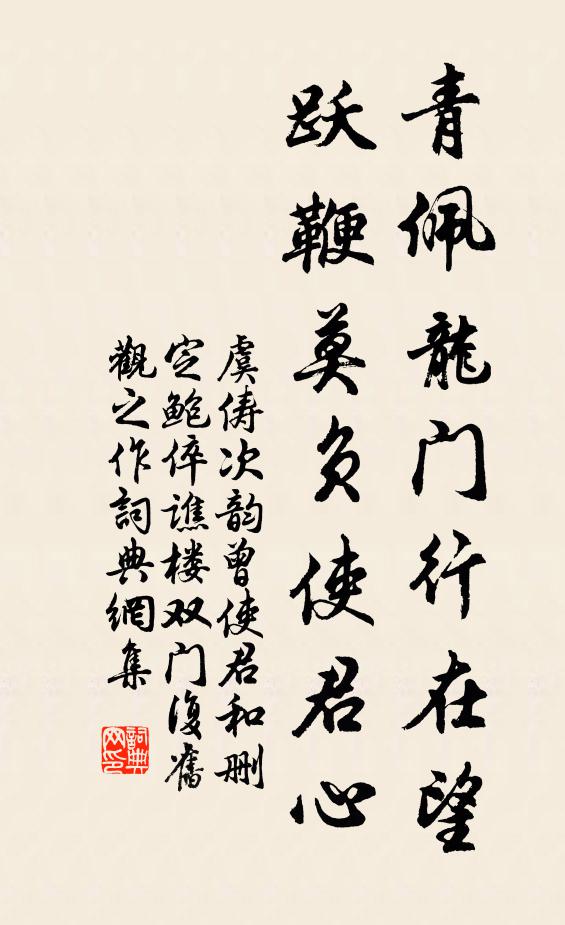 青佩龍门行在望
跃鞭莫负使君心
虞俦次韵曾使君和删
定鲍倅谯楼双门復舊
觀之作詞典網集
詞典网印